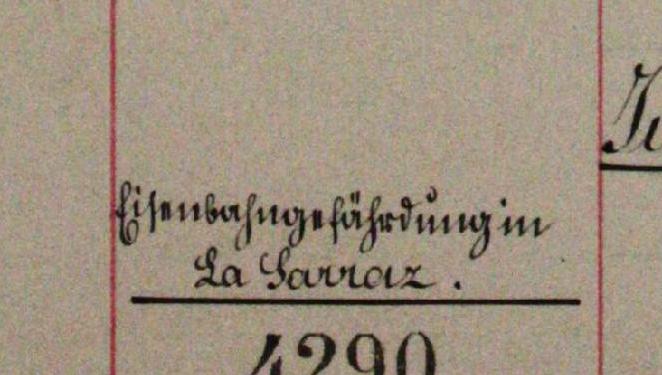 Eisenbahngefährdung in
La Sarraz.
4290